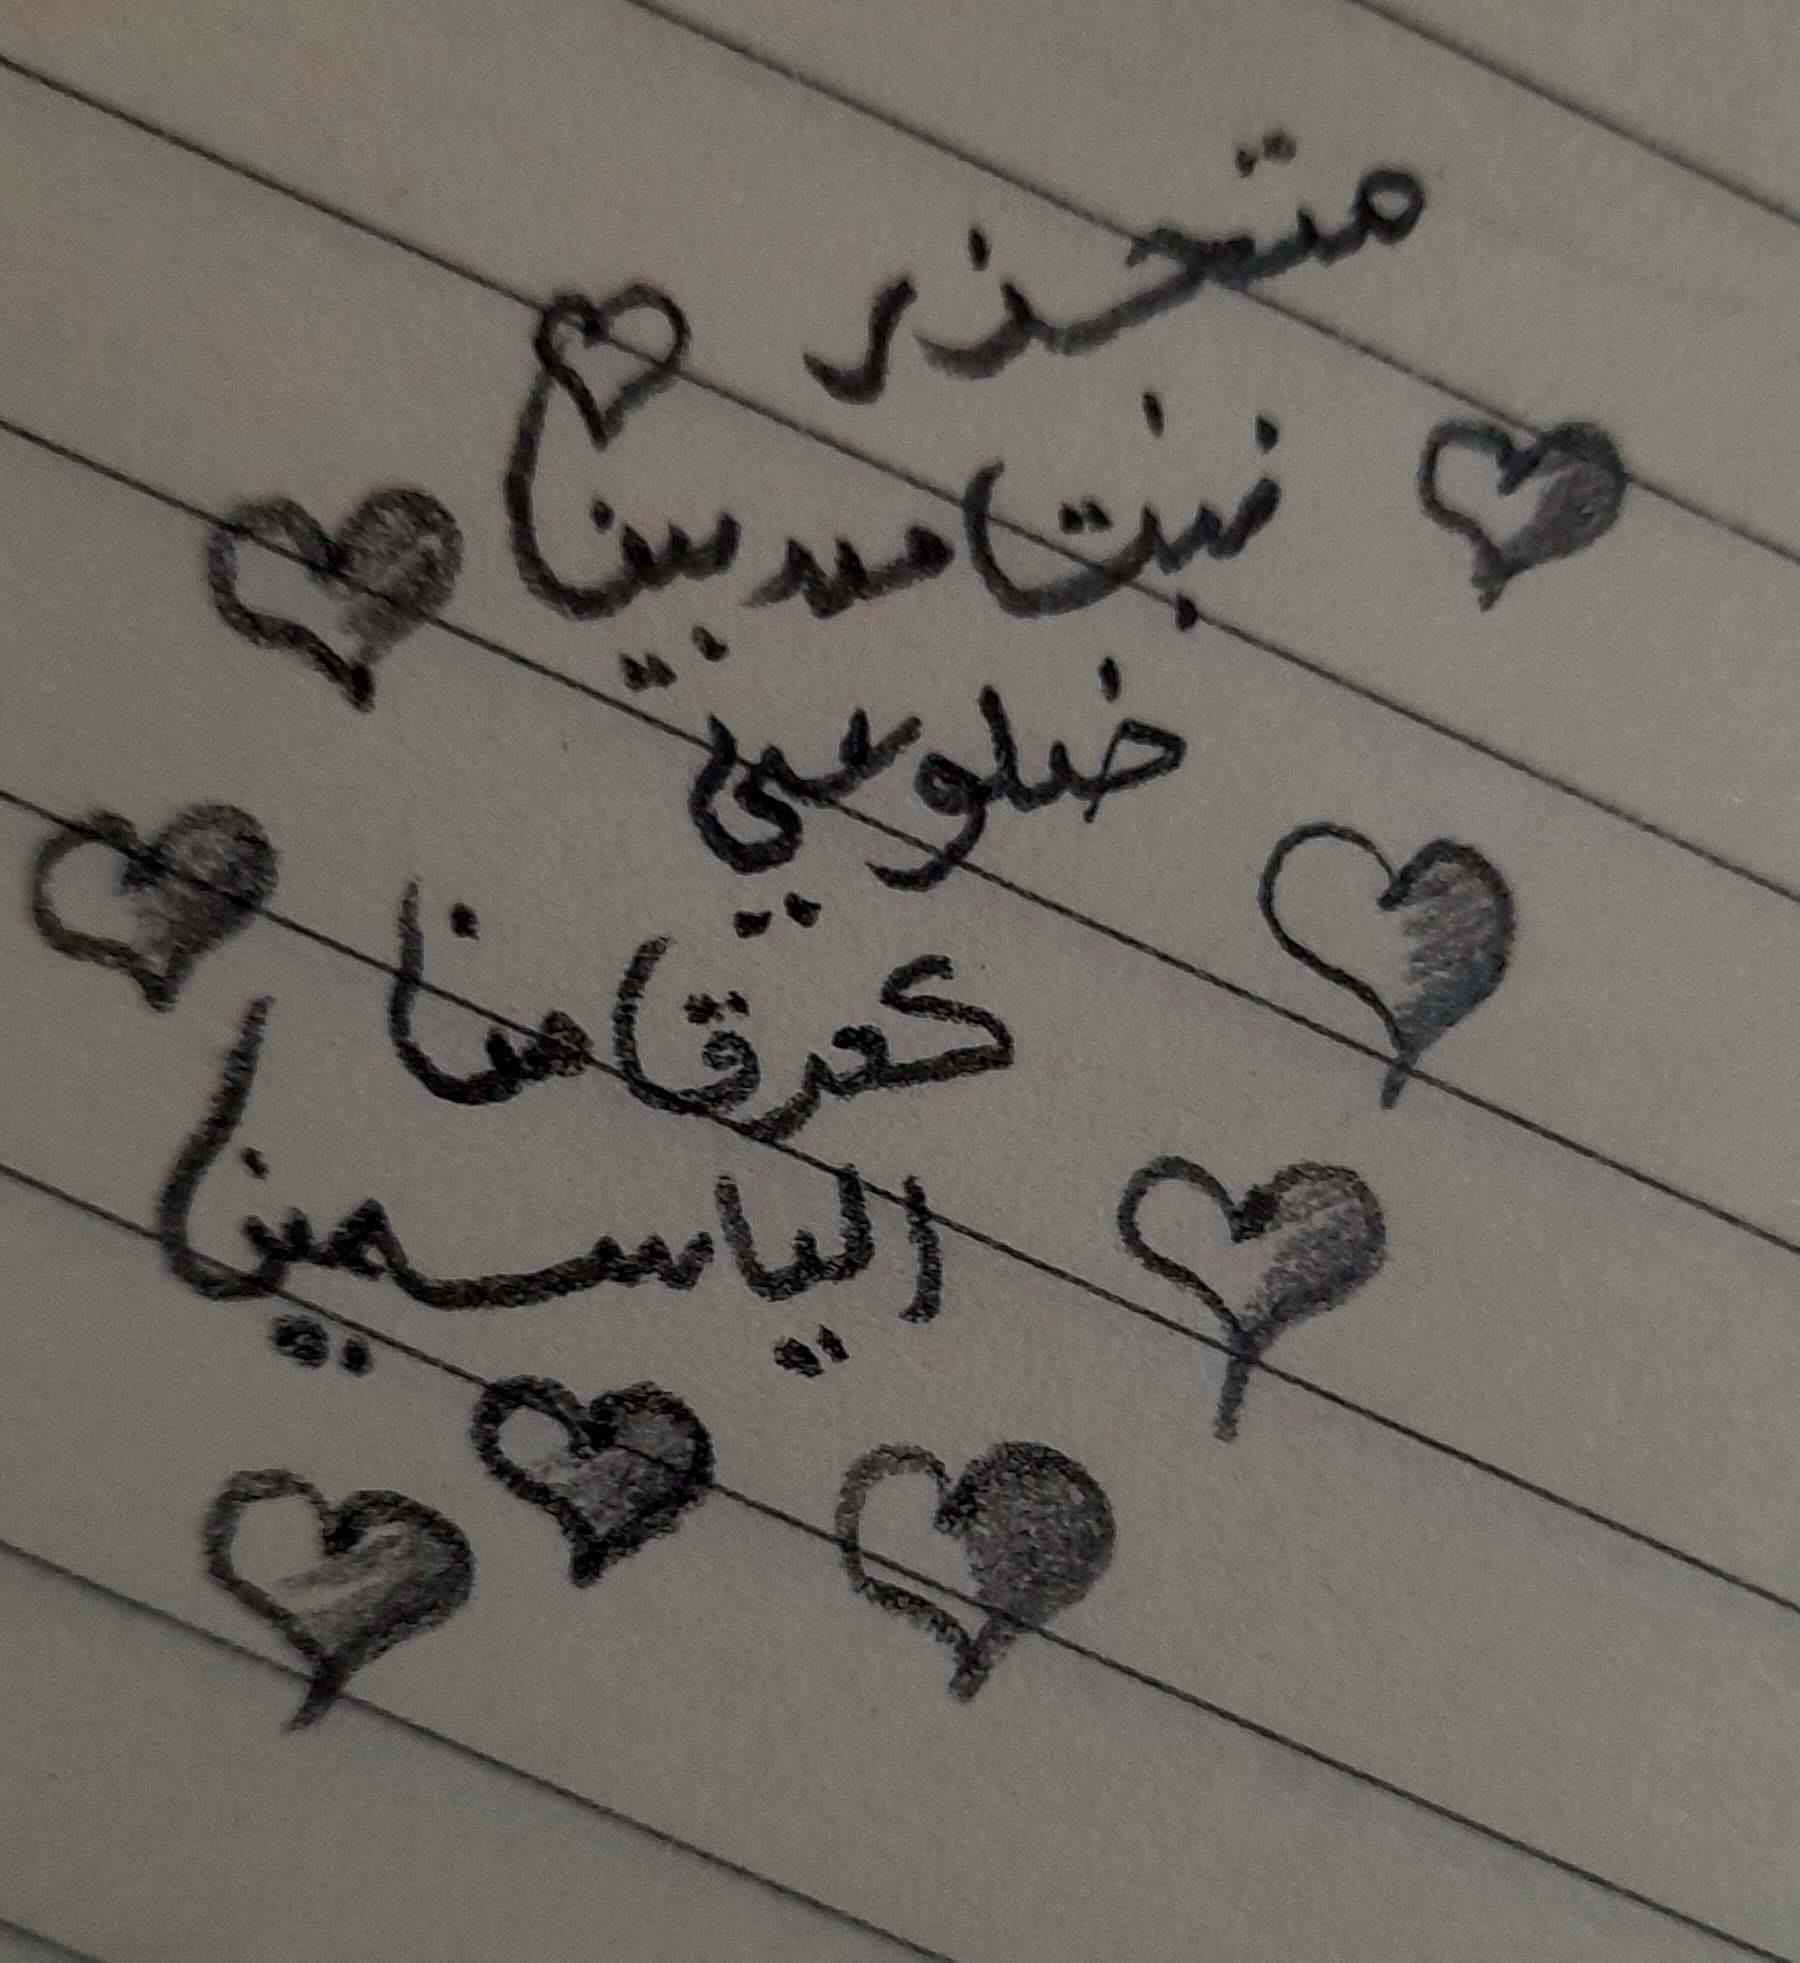 متحذر
نبتا بينا
ضلوعي
كعرقا منا
الياسمينا